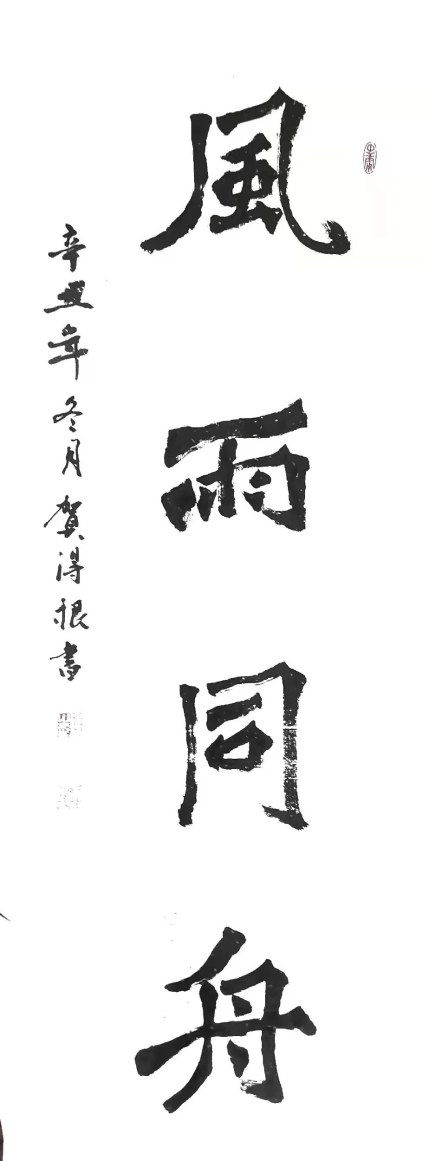 風雨同舟
辛丑年冬月賀得根書